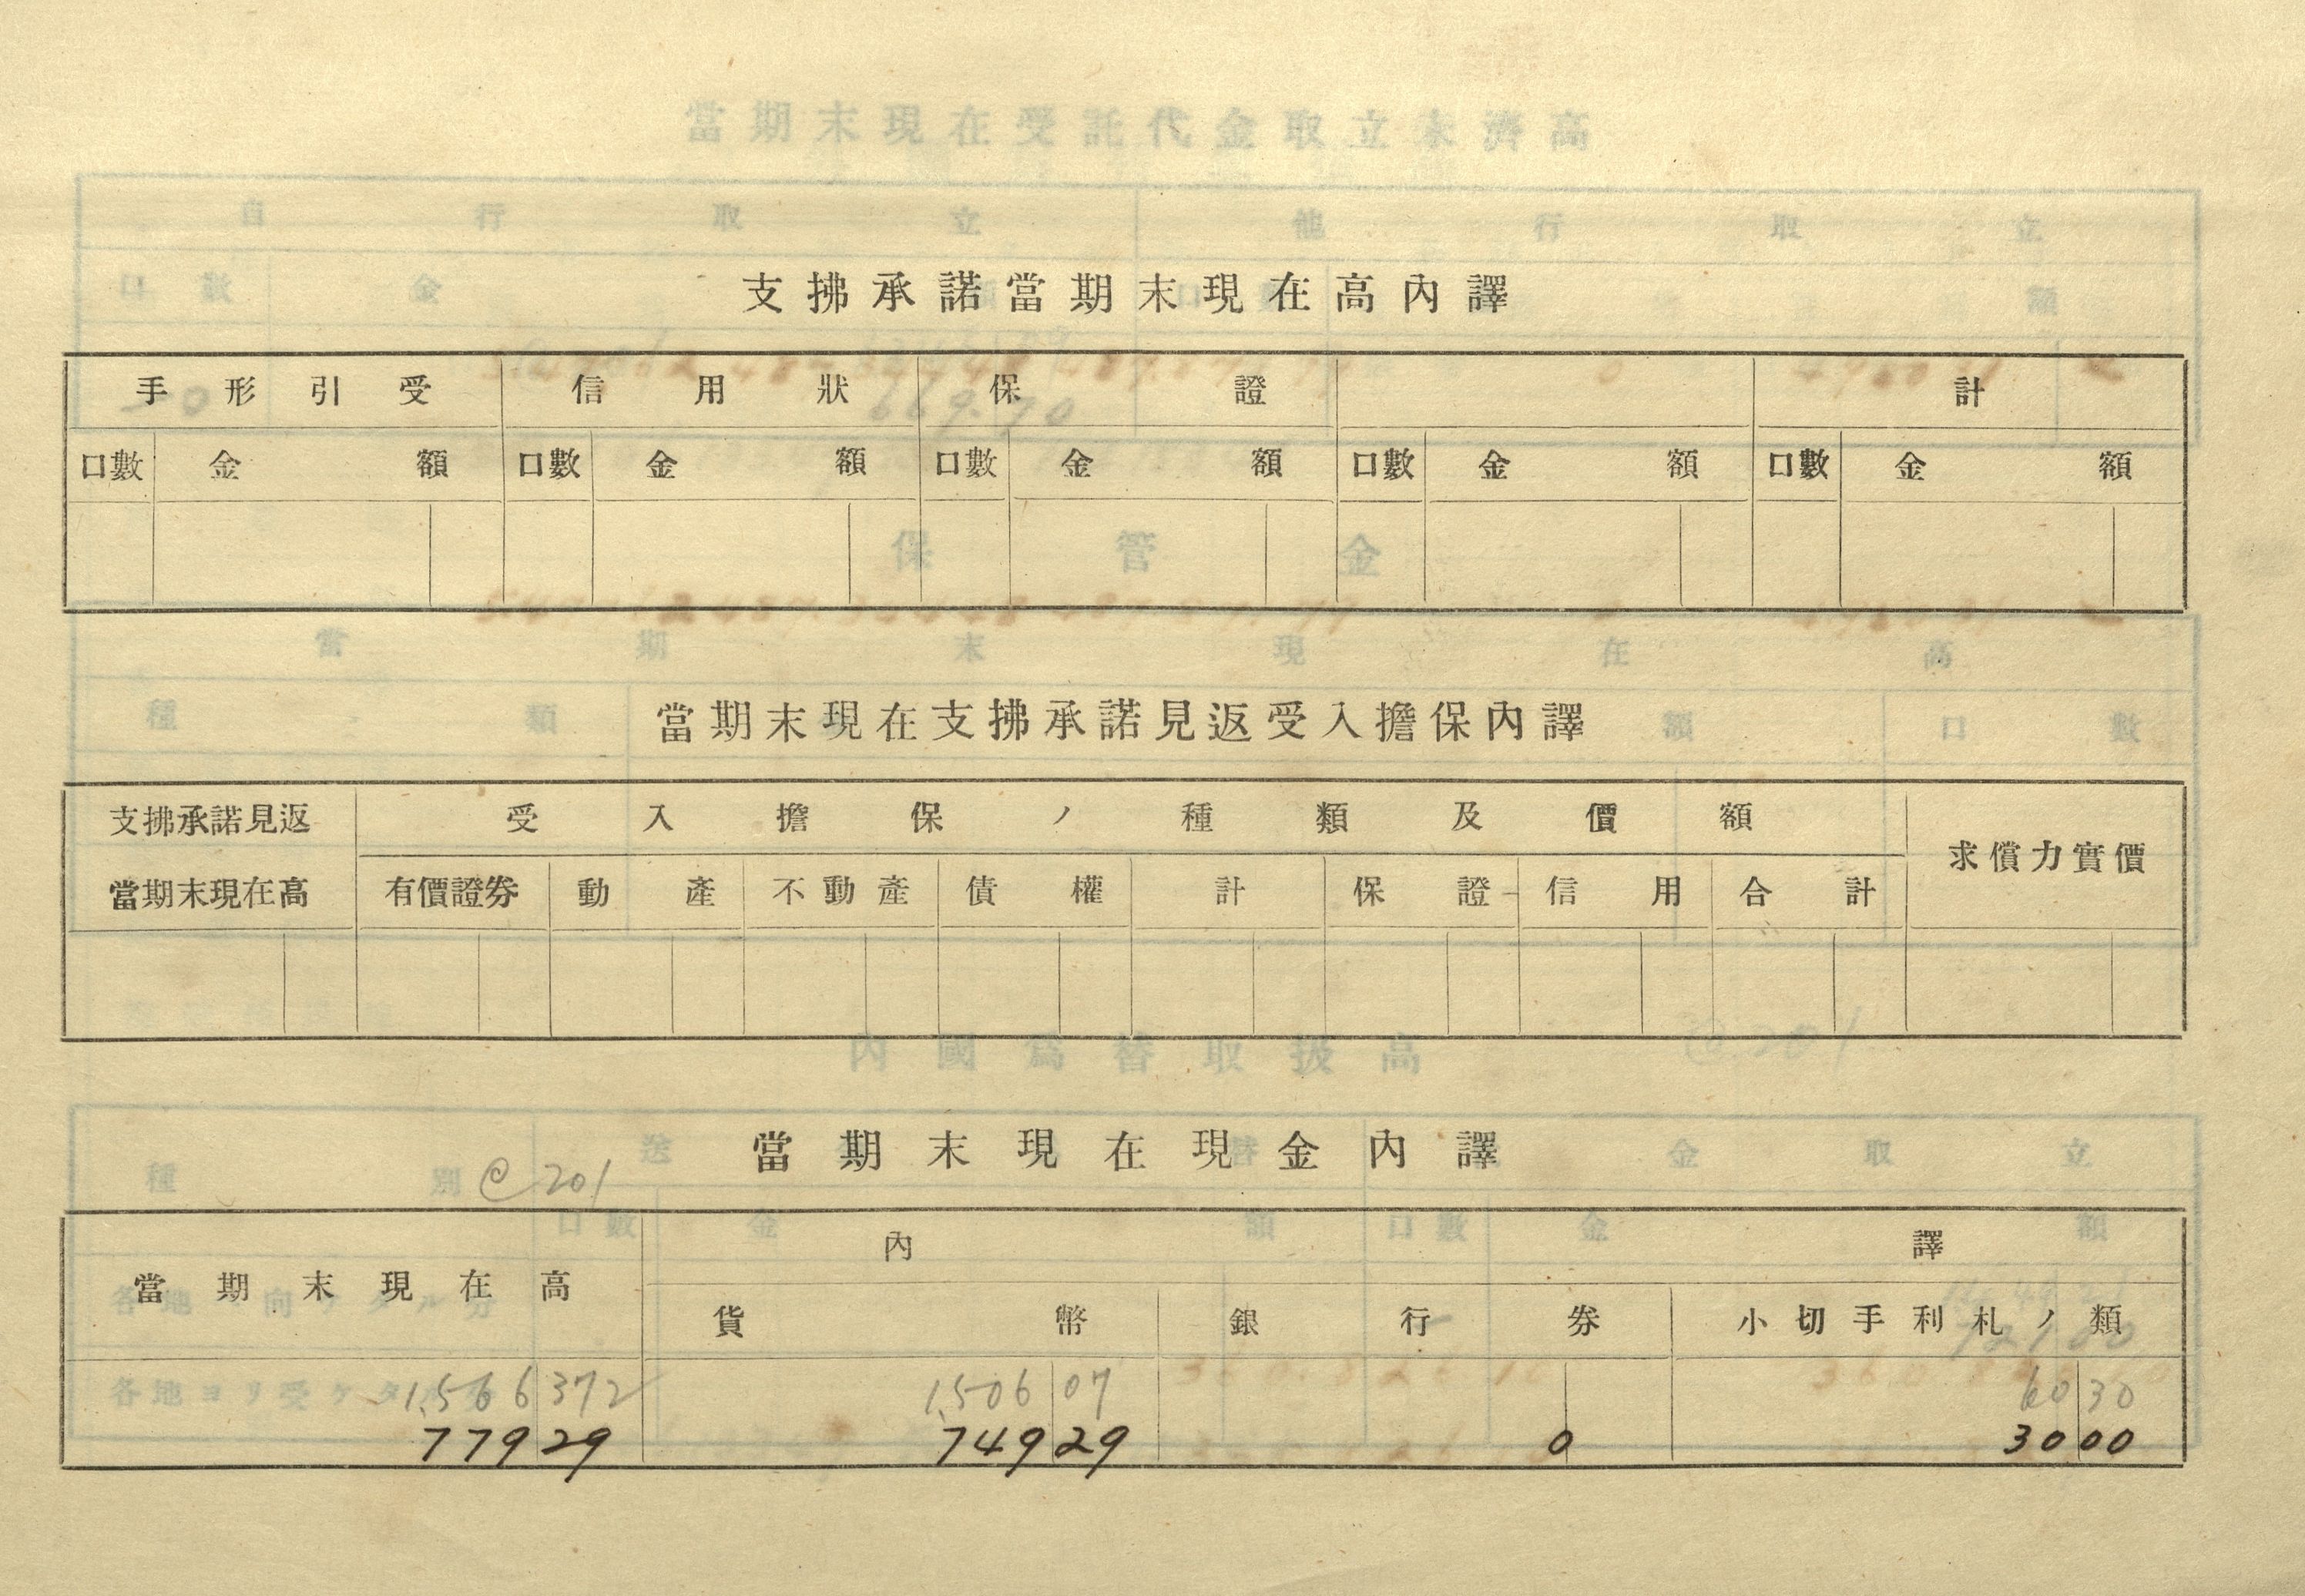 支拂承諾當期末現在高內譯
手形引受 信用狀 保證 計
口數 金額 口數 金額 口數 金額 口數 金額 口數 金額
當期末現在支拂承諾見返受入擔保內譯
支拂承諾見返 受入擔保ノ種類及價額
求償力實價
當期末現在高 有價證券 動產 不動產 債權 計 保證 信用 合計
當期末現在現金內譯
@ 201
內譯
當期末現在高
貨幣 銀行券 小切手利札ノ類
1,566 372 1,506 07 60 30
779 29 749 29 0 30 00